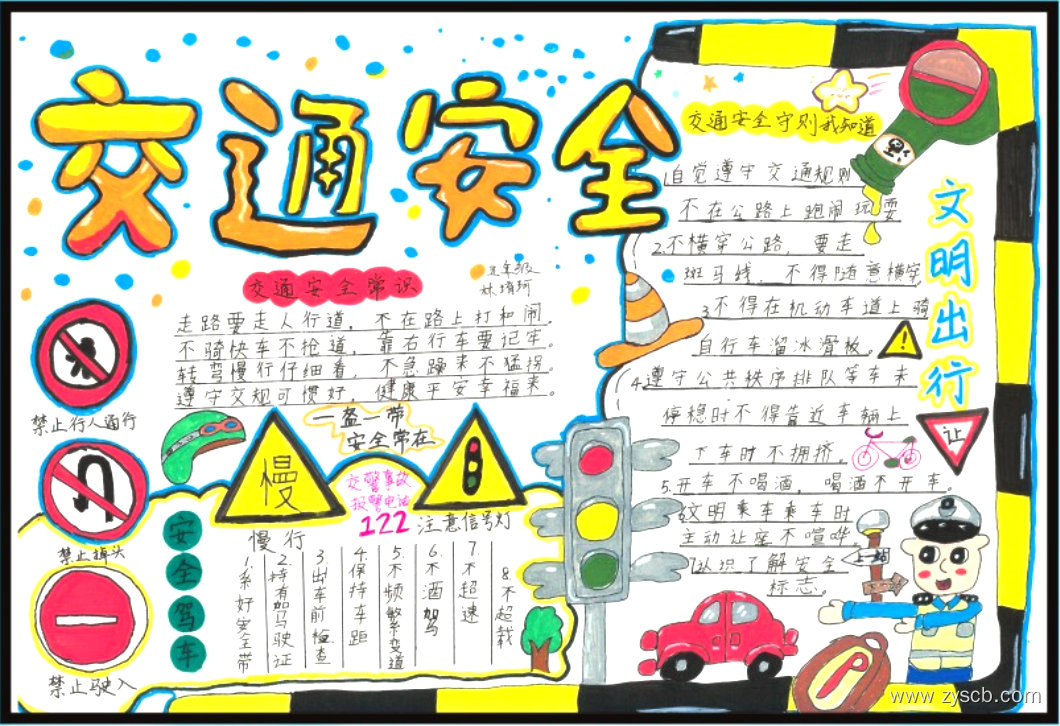 交通安全
交通安全常识
五年级
走路要走人行道，不在路上打和闹。
不骑快车不抢道，靠右行车要记牢。
转弯慢行仔细看，不急躁来不猛拐。
遵守交规可惯好，健康平安幸福来。
禁止行人通行
禁止掉头
禁止驶入
一盔一带
安全常在
慢
慢行
交警事故
报警电话
122
注意信号灯
安全驾车
1.系好安全带
2.持有驾驶证
3出车前检查
4.保持车距
5.不频繁变道
6.不酒驾
7.不超速
8.不超载
交通安全守则我知道
1自觉遵守交通规则
不在公路上跑闹玩耍
2.不横穿公路，要走
斑马线，不得随意横穿
3不得在机动车道上骑
自行车溜冰滑板。
4遵守公共秩序排队等车未
停稳时不得靠近车辆上
下车时不拥挤。
5.开车不喝酒，喝酒不开车。
6文明乘车乘车时
主动让座不喧哗。
7认识了解安全
标志。
文明出行
让
P
www.zyscb.com